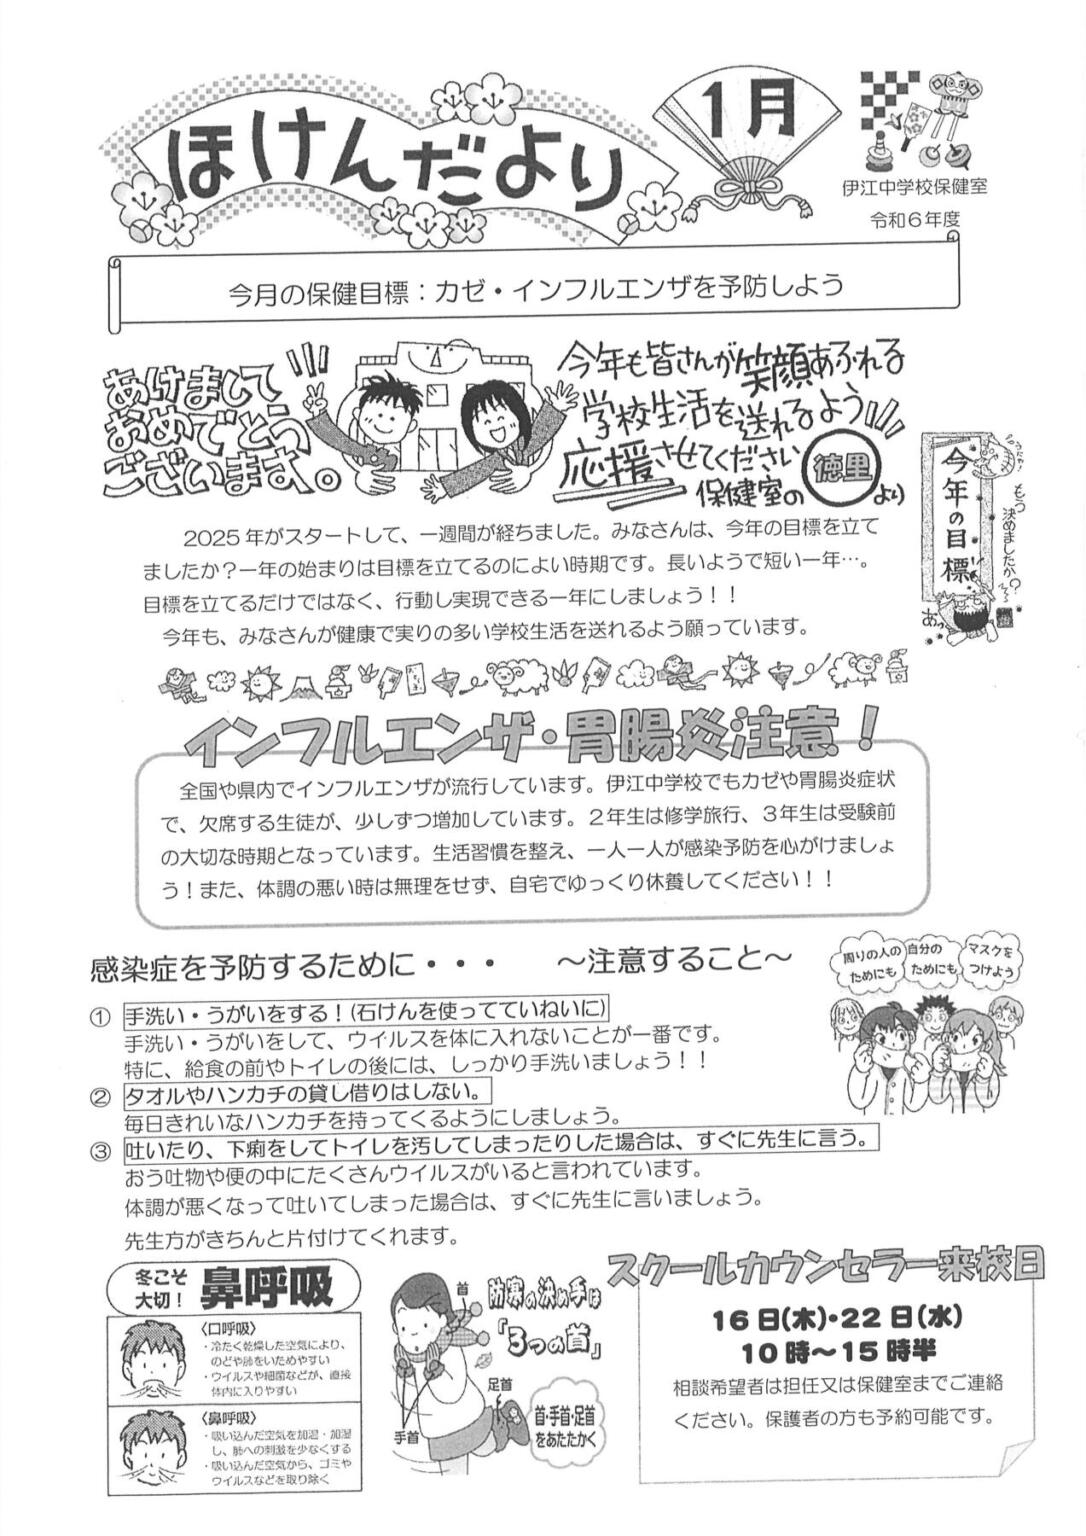 ほけんだより
1月
伊江中学校保健室
令和６年度
今月の保健目標：カゼ・インフルエンザを予防しよう
あけまして
おめでとう
ございます。
今年も皆さんが笑顔あふれる
学校生活を送れるよう
応援させてください
保健室の徳里より
今年の目標
もう決めましたか？
あっ
2025 年がスタートして、一週間が経ちました。みなさんは、今年の目標を立て
ましたか？一年の始まりは目標を立てるのによい時期です。長いようで短い一年…。
目標を立てるだけではなく、行動し実現できる一年にしましょう！！
今年も、みなさんが健康で実りの多い学校生活を送れるよう願っています。
インフルエンザ・胃腸炎注意！
全国や県内でインフルエンザが流行しています。伊江中学校でもカゼや胃腸炎症状
で、欠席する生徒が、少しずつ増加しています。２年生は修学旅行、３年生は受験前
の大切な時期となっています。生活習慣を整え、一人一人が感染予防を心がけましょ
う！また、体調の悪い時は無理をせず、自宅でゆっくり休養してください！！
感染症を予防するために・・・　～注意すること～
周りの人の
ためにも
自分の
ためにも
マスクを
つけよう
① 手洗い・うがいをする！(石けんを使ってていねいに)
手洗い・うがいをして、ウイルスを体に入れないことが一番です。
特に、給食の前やトイレの後には、しっかり手洗いましょう！！
② タオルやハンカチの貸し借りはしない。
毎日きれいなハンカチを持ってくるようにしましょう。
③ 吐いたり、下痢をしてトイレを汚してしまったりした場合は、すぐに先生に言う。
おう吐物や便の中にたくさんウイルスがいると言われています。
体調が悪くなって吐いてしまった場合は、すぐに先生に言いましょう。
先生方がきちんと片付けてくれます。
冬こそ
大切！
鼻呼吸
〈口呼吸〉
・冷たく乾燥した空気により、
のどや肺をいためやすい
・ウイルスや細菌などが、直接
体内に入りやすい
〈鼻呼吸〉
・吸い込んだ空気を加温・加湿
し、肺への刺激を少なくする
・吸い込んだ空気から、ゴミや
ウイルスなどを取り除く
首
手首
足首
防寒の決め手は
「3つの首」
首・手首・足首
をあたたかく
スクールカウンセラー来校日
16日(木)・22日(水)
10時～15時半
相談希望者は担任又は保健室までご連絡
ください。保護者の方も予約可能です。